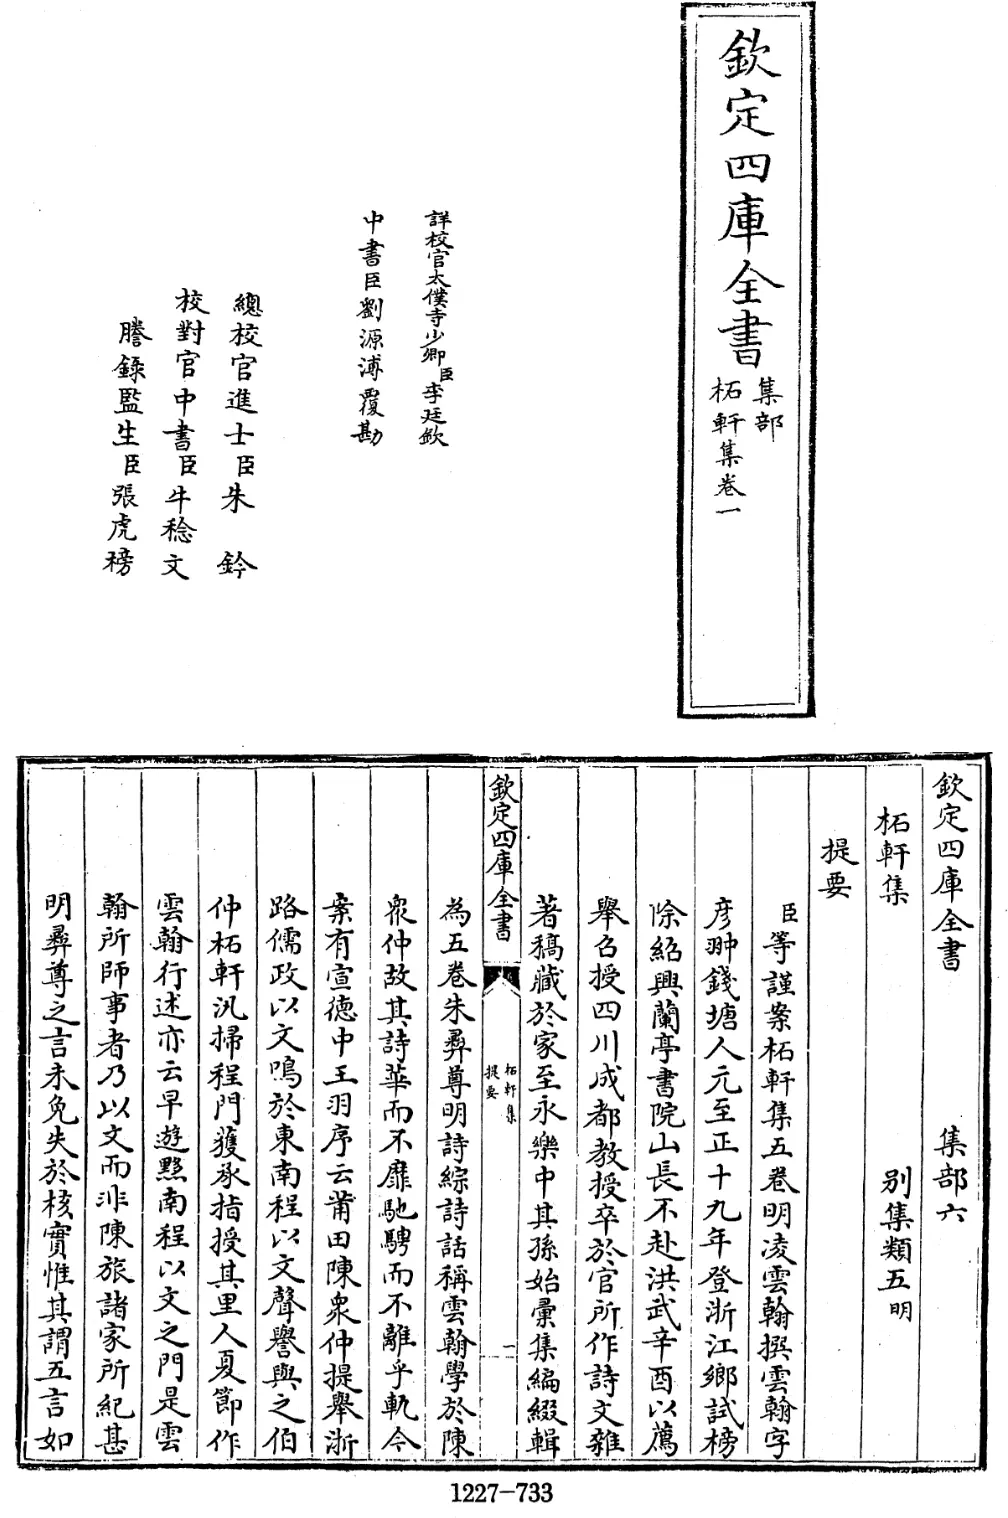 欽定四庫全書
集部
柘軒集卷一
詳校官太僕寺少卿臣李廷欽
中書臣劉源溥覆勘
總校官進士臣朱鈐
校對官中書臣牛稔文
謄錄監生臣張虎榜
欽定四庫全書 集部六
柘軒集 別集類五明
提要
臣等謹案柘軒集五卷明凌雲翰撰雲翰字
彦翀錢塘人元至正十九年登浙江鄉試榜
除紹興蘭亭書院山長不赴洪武辛酉以薦
舉召授四川成都教授卒於官所作詩文雜
著稿藏於家至永樂中其孫始彙集編綴輯
欽定四庫全書
柘軒集
提要
一
為五卷朱彝尊明詩綜詩話稱雲翰學於陳
衆仲故其詩華而不靡馳騁而不離乎軌今
案有宣德中王羽序云莆田陳衆仲提舉浙
路儒政以文鳴於東南程以文聲譽與之伯
仲柘軒汎掃程門獲承指授其里人夏節作
雲翰行述亦云早遊黟南程以文之門是雲
翰所師事者乃以文而非陳旅諸家所紀甚
明彝尊之言未免失於核實惟其謂五言如
1227-733